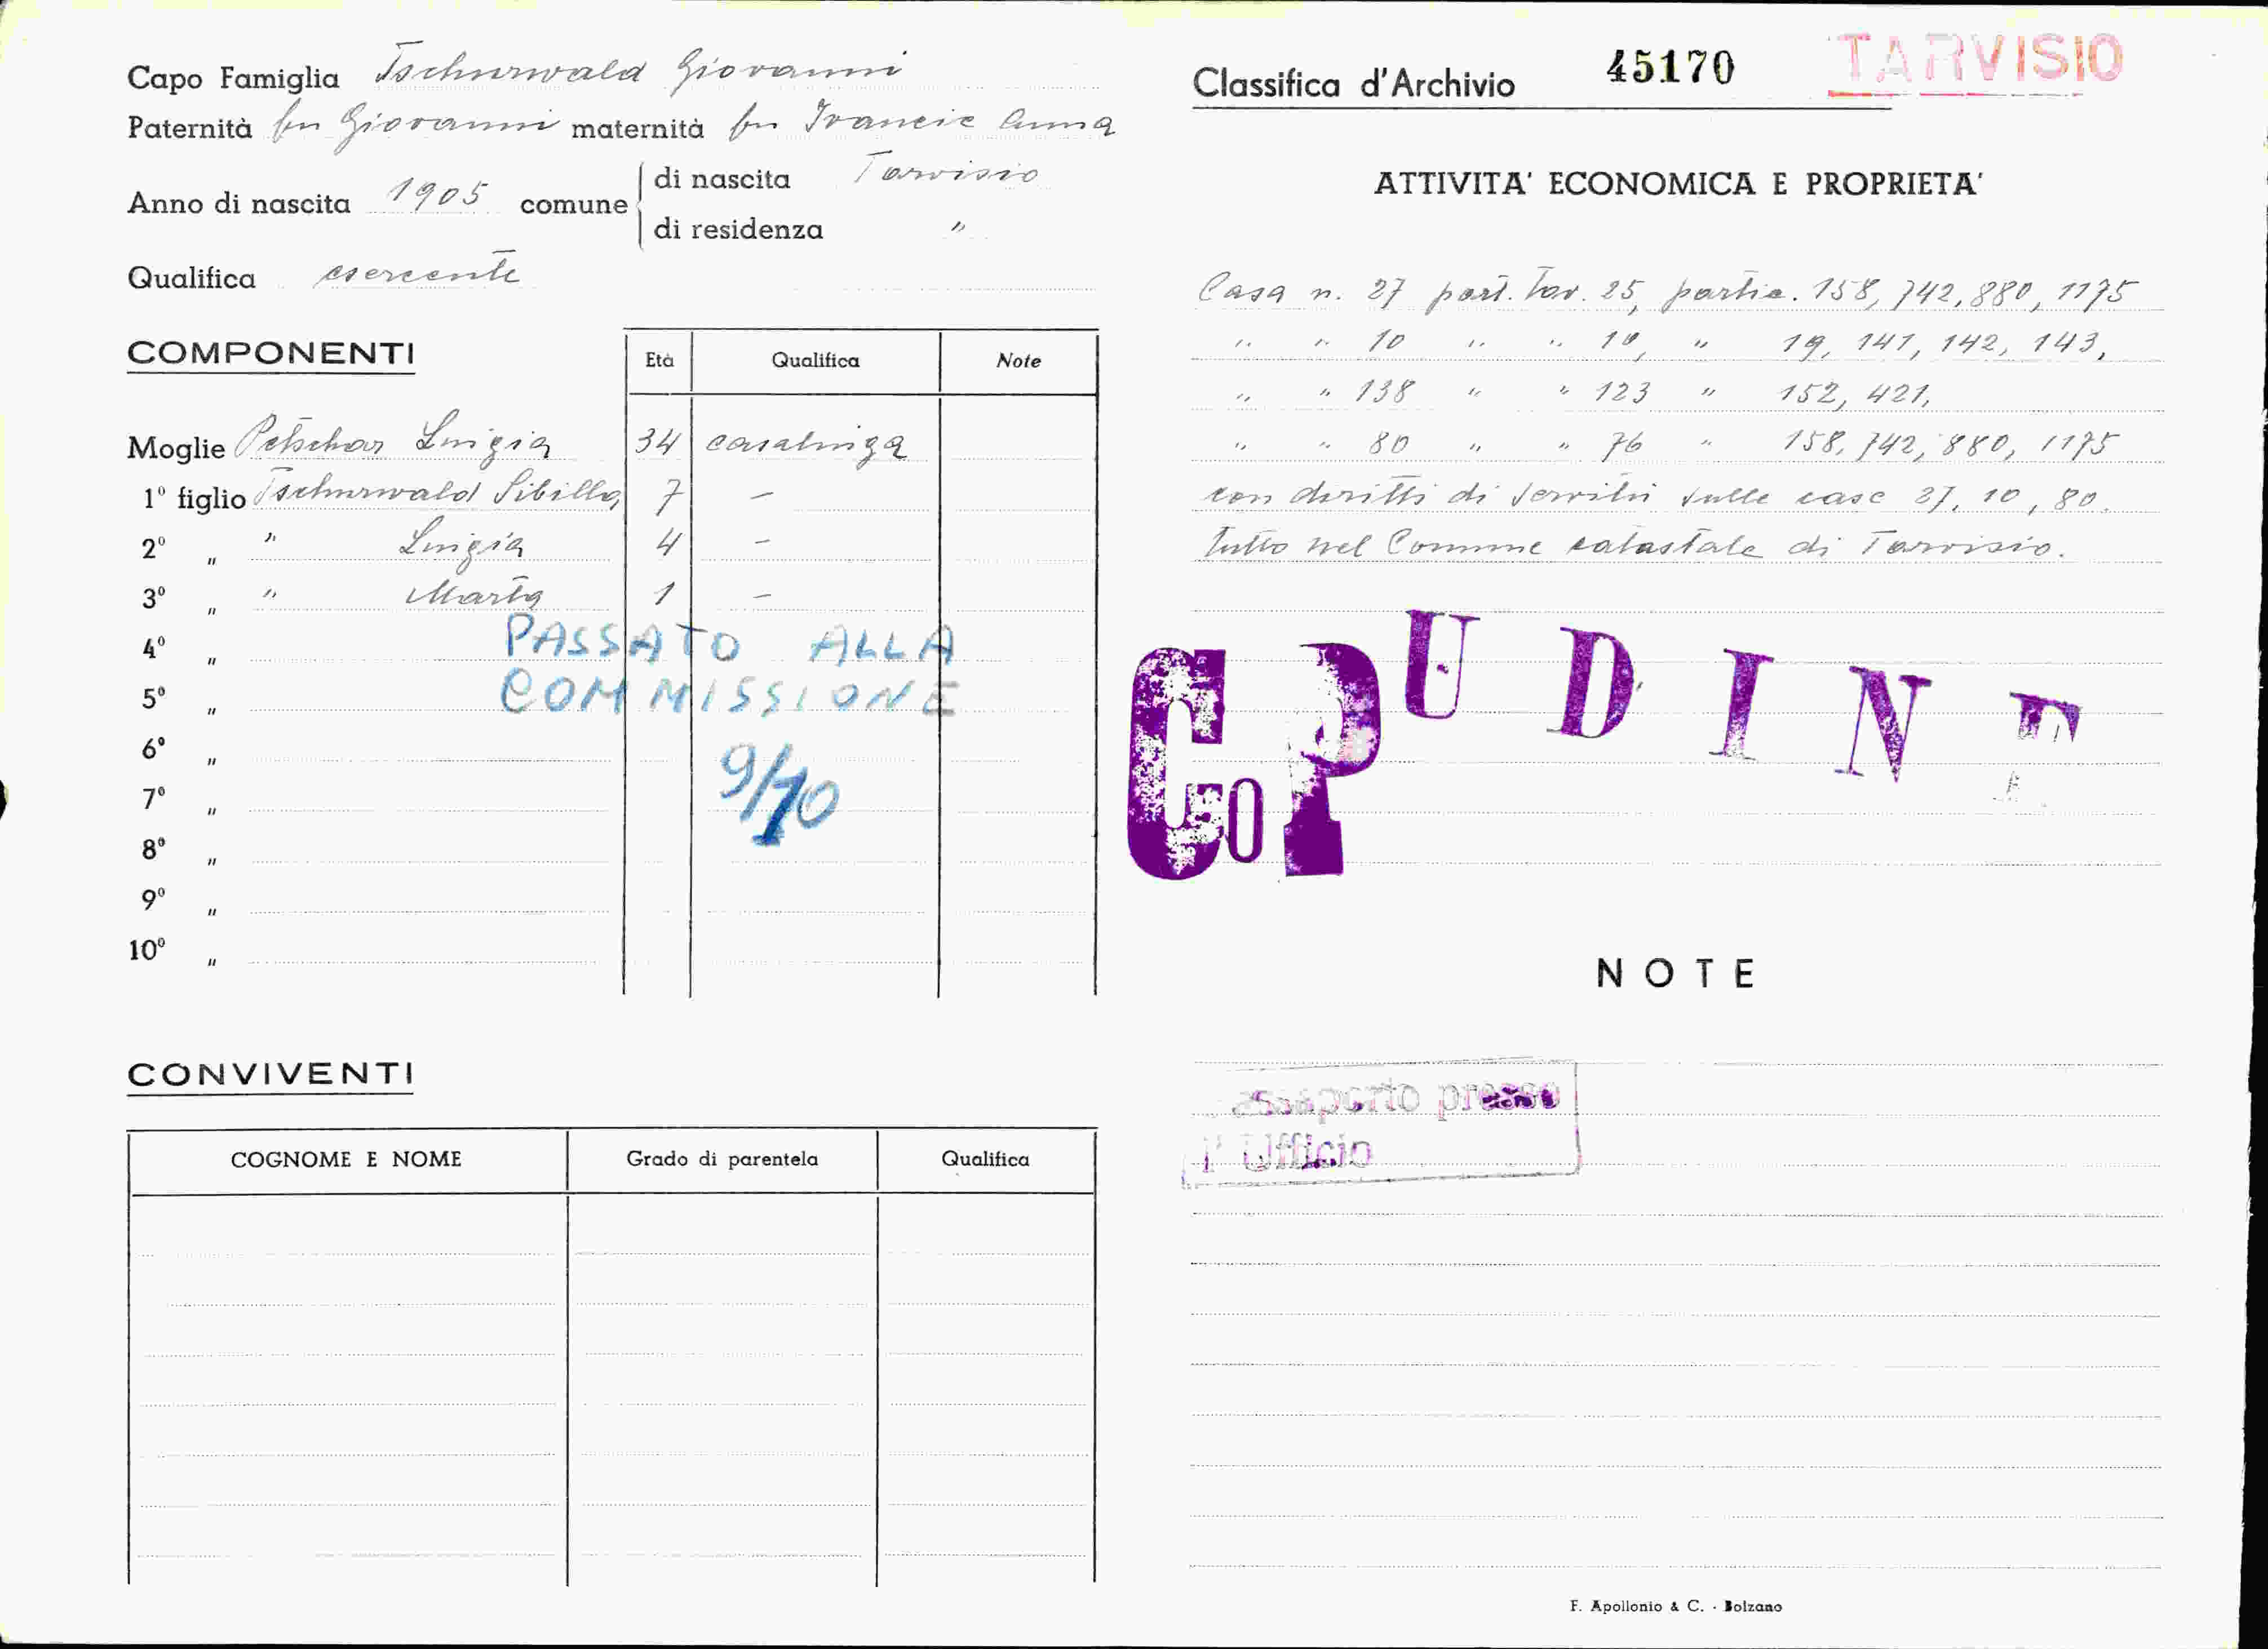 Capo Famiglia Tschurwald Giovanni
Paternità fu Giovanni maternità fu Francic Anna
Anno di nascita 1905 comune di nascita Tarvisio
di residenza "
Qualifica esercente
COMPONENTI Età Qualifica Note
Moglie Petschar Luigia 34 casalinga
1° figlio Tschurwald Sibilla 7 –
2° " " Luigia 4 –
3° " " Marta 1 –
4° "
5° "
6° "
7° "
8° "
9° "
10° "
PASSATO ALLA
COMMISSIONE
9/10
CONVIVENTI
COGNOME E NOME Grado di parentela Qualifica
Classifica d'Archivio 45170 TARVISIO
ATTIVITA' ECONOMICA E PROPRIETA'
Casa n. 27 part. Tav. 25, partic. 158, 742, 880, 1175
" " 10 " " 10, " 19, 141, 142, 143,
" " 138 " " 123 " 152, 421,
" " 80 " " 76 " 158, 742, 880, 1175
con diritti di servitù sulle case 27, 10, 80.
Tutto nel Comune catastale di Tarvisio.
CoP UDINE
NOTE
presso
l'Ufficio
F. Apollonio & C. - Bolzano